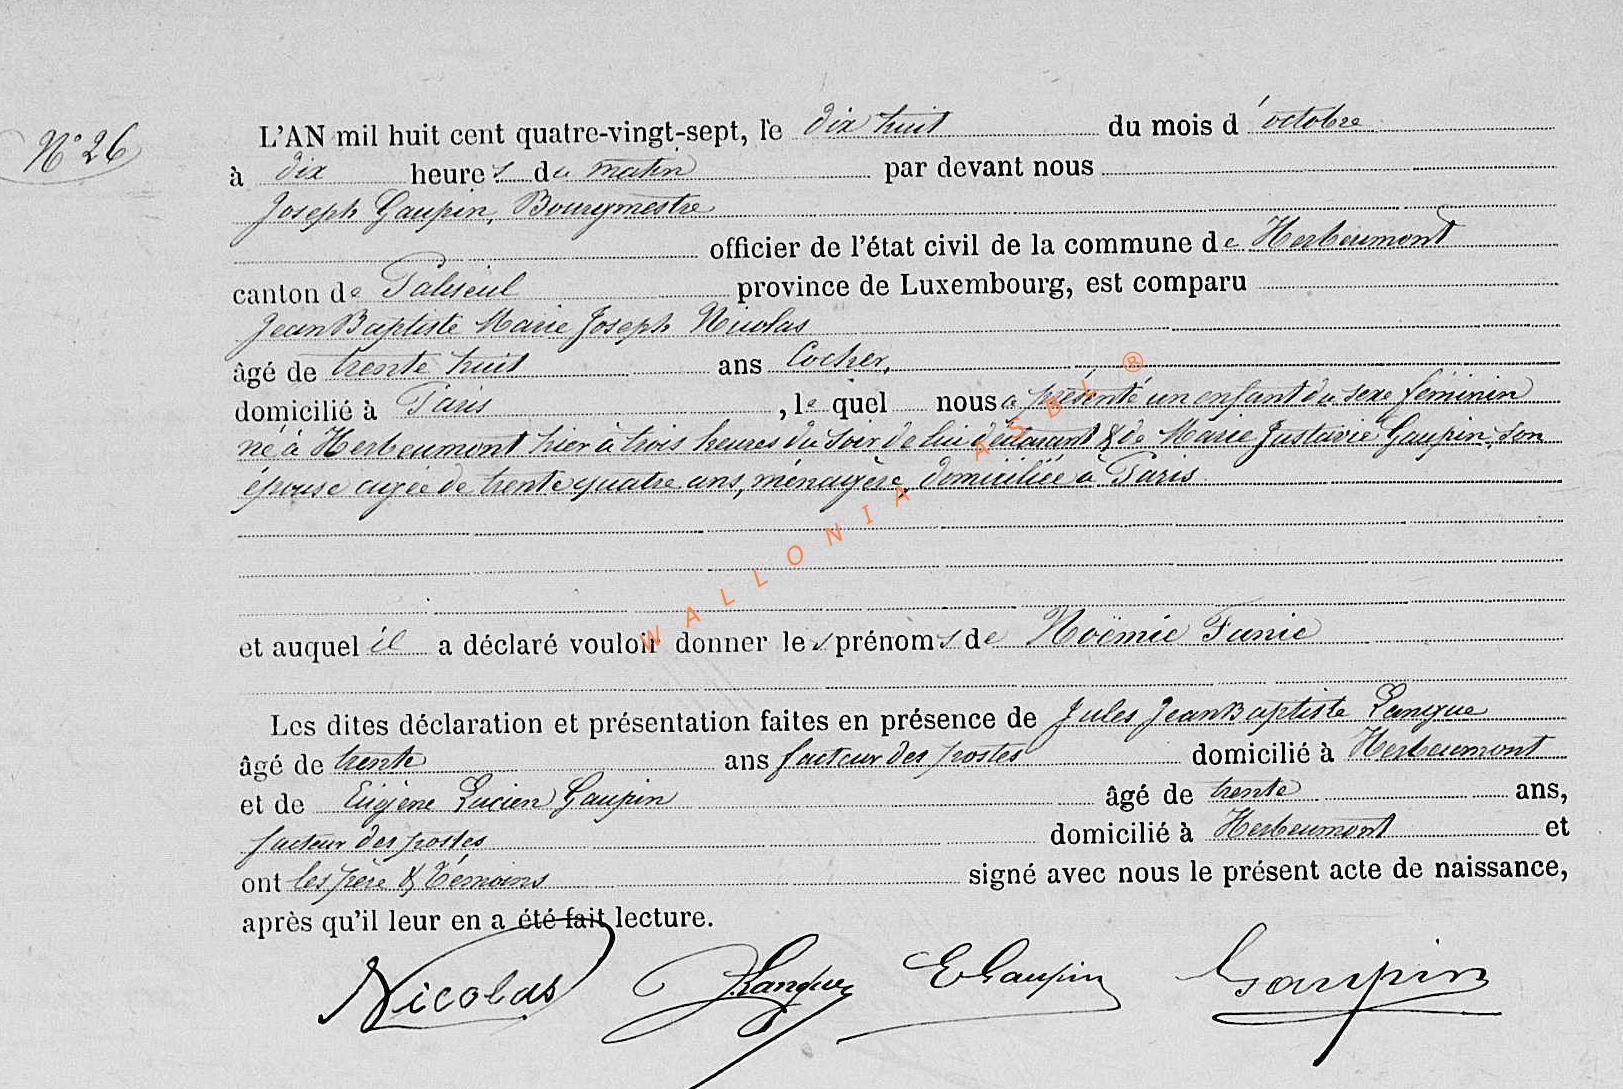 N° 26
L'AN mil huit cent quatre-vingt-sept, le dix huit du mois d'octobre
à dix heures du matin par devant nous
Joseph Gaupin, Bourgmestre
officier de l'état civil de la commune de Herbeumont
canton de Paliseul province de Luxembourg, est comparu
Jean Baptiste Marie Joseph Nicolas
âgé de trente huit ans Cocher,
domicilié à Paris, le quel nous a présenté un enfant du sexe féminin
né à Herbeumont hier à trois heures du soir de lui déclarant & de Marie Justavie Gaupin, son
épouse agée de trente quatre ans, ménagère, domiciliée à Paris
et auquel il a déclaré vouloir donner les prénoms de Noëmie Fanie
Les dites déclaration et présentation faites en présence de Jules Jean Baptiste Langue
âgé de trente ans facteur des postes domicilié à Herbeumont
et de Eugène Lucien Gaupin âgé de trente ans,
facteur des postes domicilié à Herbeumont et
ont les père & témoins signé avec nous le présent acte de naissance,
après qu'il leur en a été fait lecture.
Nicolas J. Langue E Gaupin Gaupin
WALLONIA ASBL ®